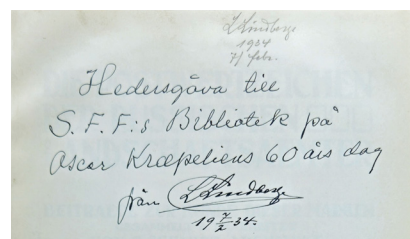 L Lindberg
1934
7/ febr.
Hedersgåva till
S.F.F:s Bibliotek på
Oscar Kræpeliens 60 års dag
från L Lindberg
19 7/2 34.